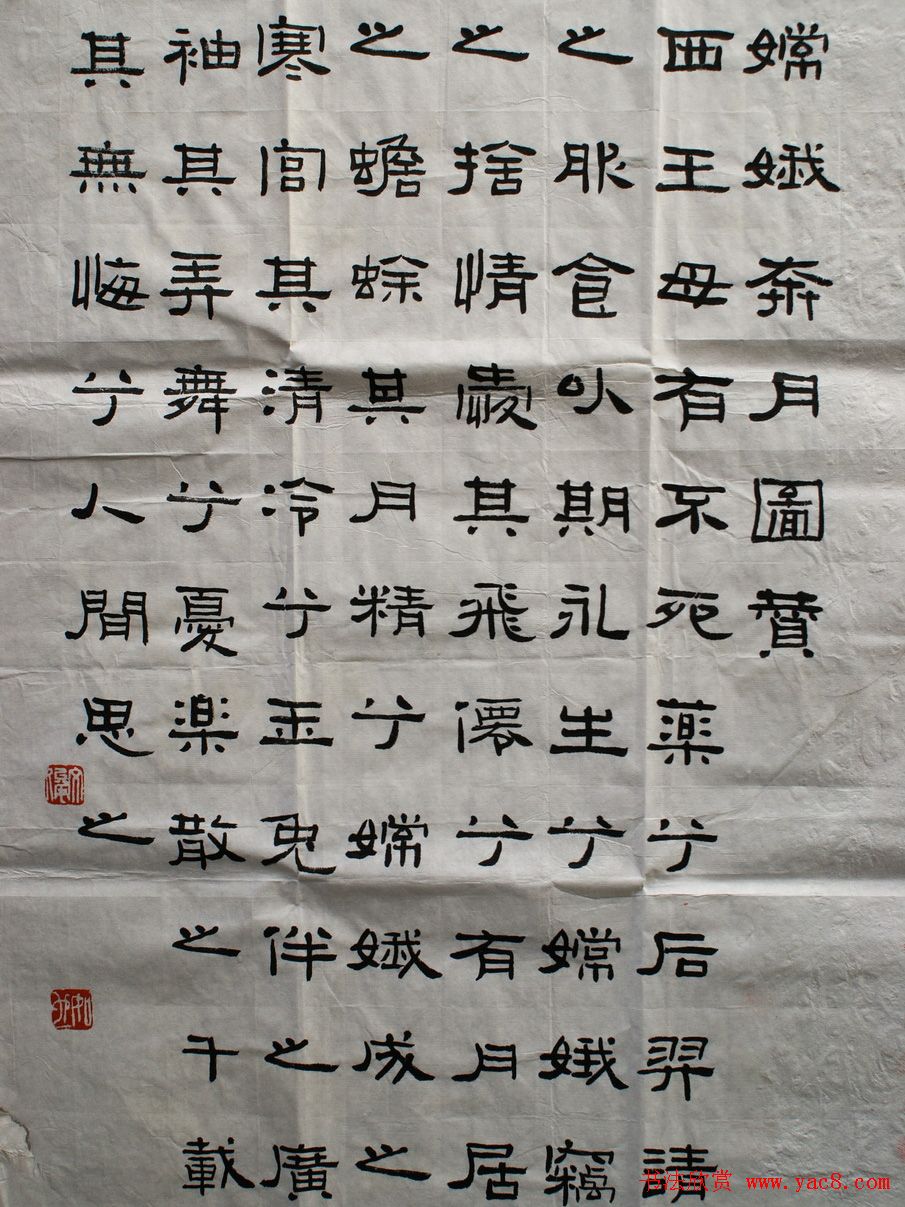 嫦娥奔月圖贊
西王母有不死薬兮后羿請
之服食以期永生兮嫦娥竊
之捨情其飛僊兮有月居
之蟾蜍其月精兮嫦娥成之
寒宮其清冷兮玉兔伴之廣
袖其弄舞兮憂楽散之千載
其無悔兮人間思之
书法欣赏 www.yac8.com